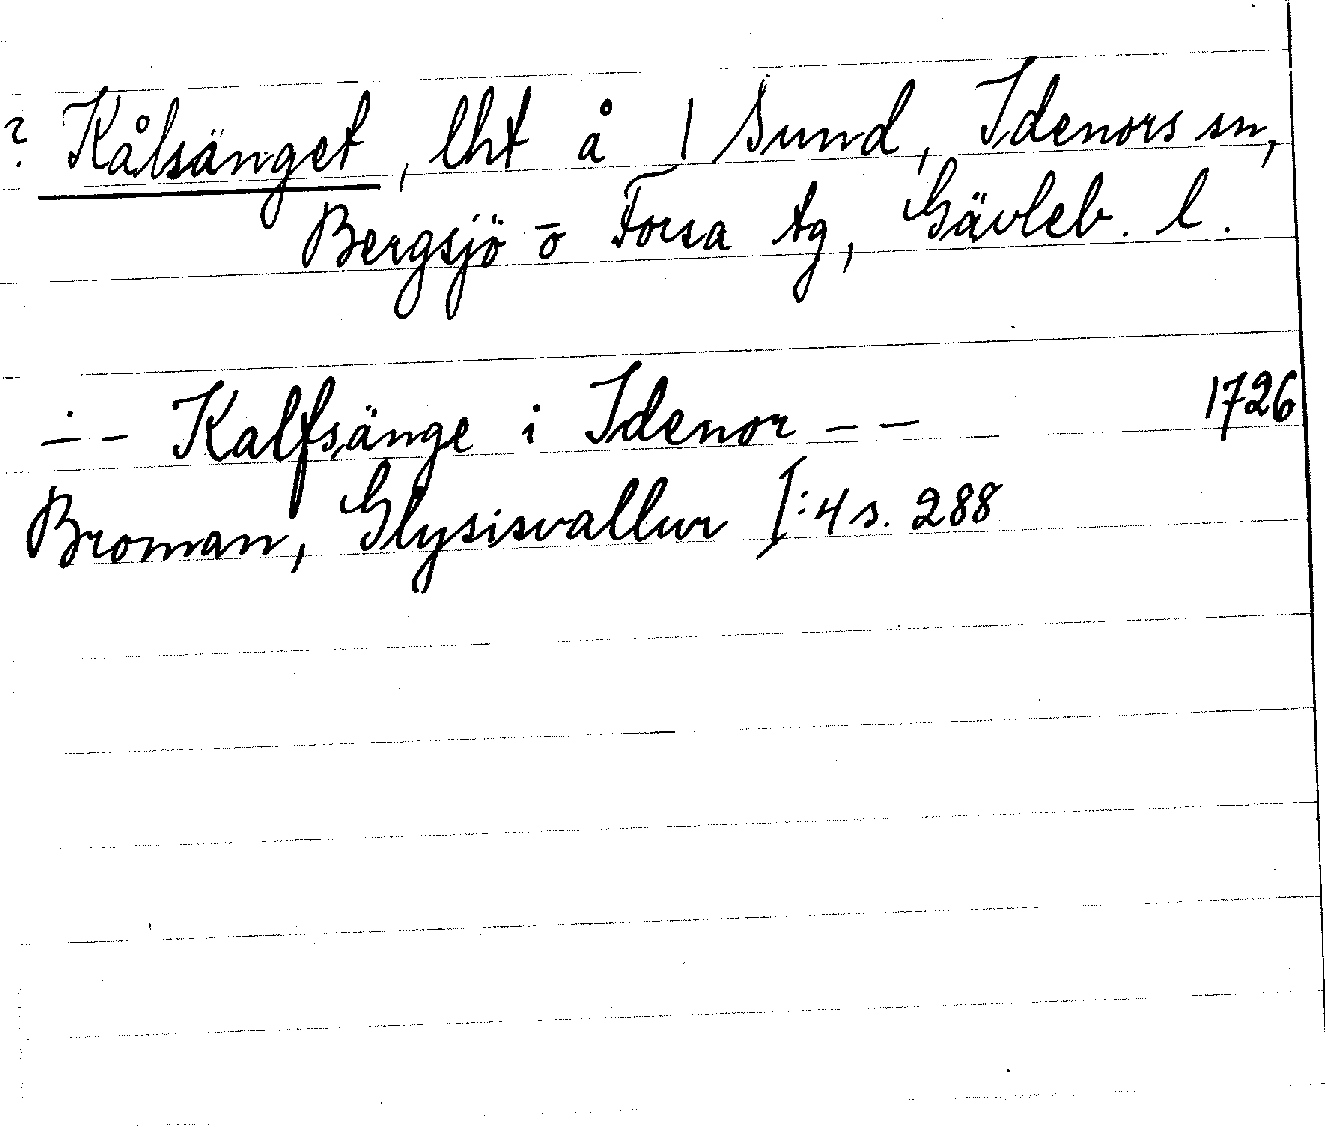 ? Kålsänget, lht å 1 Sund, Idenors sn,
Bergsjö o Forsa tg, Gävleb. l.
-- Kalfsänge i Idenor -- 1726
Broman, Glysisvallur I:4 s. 288